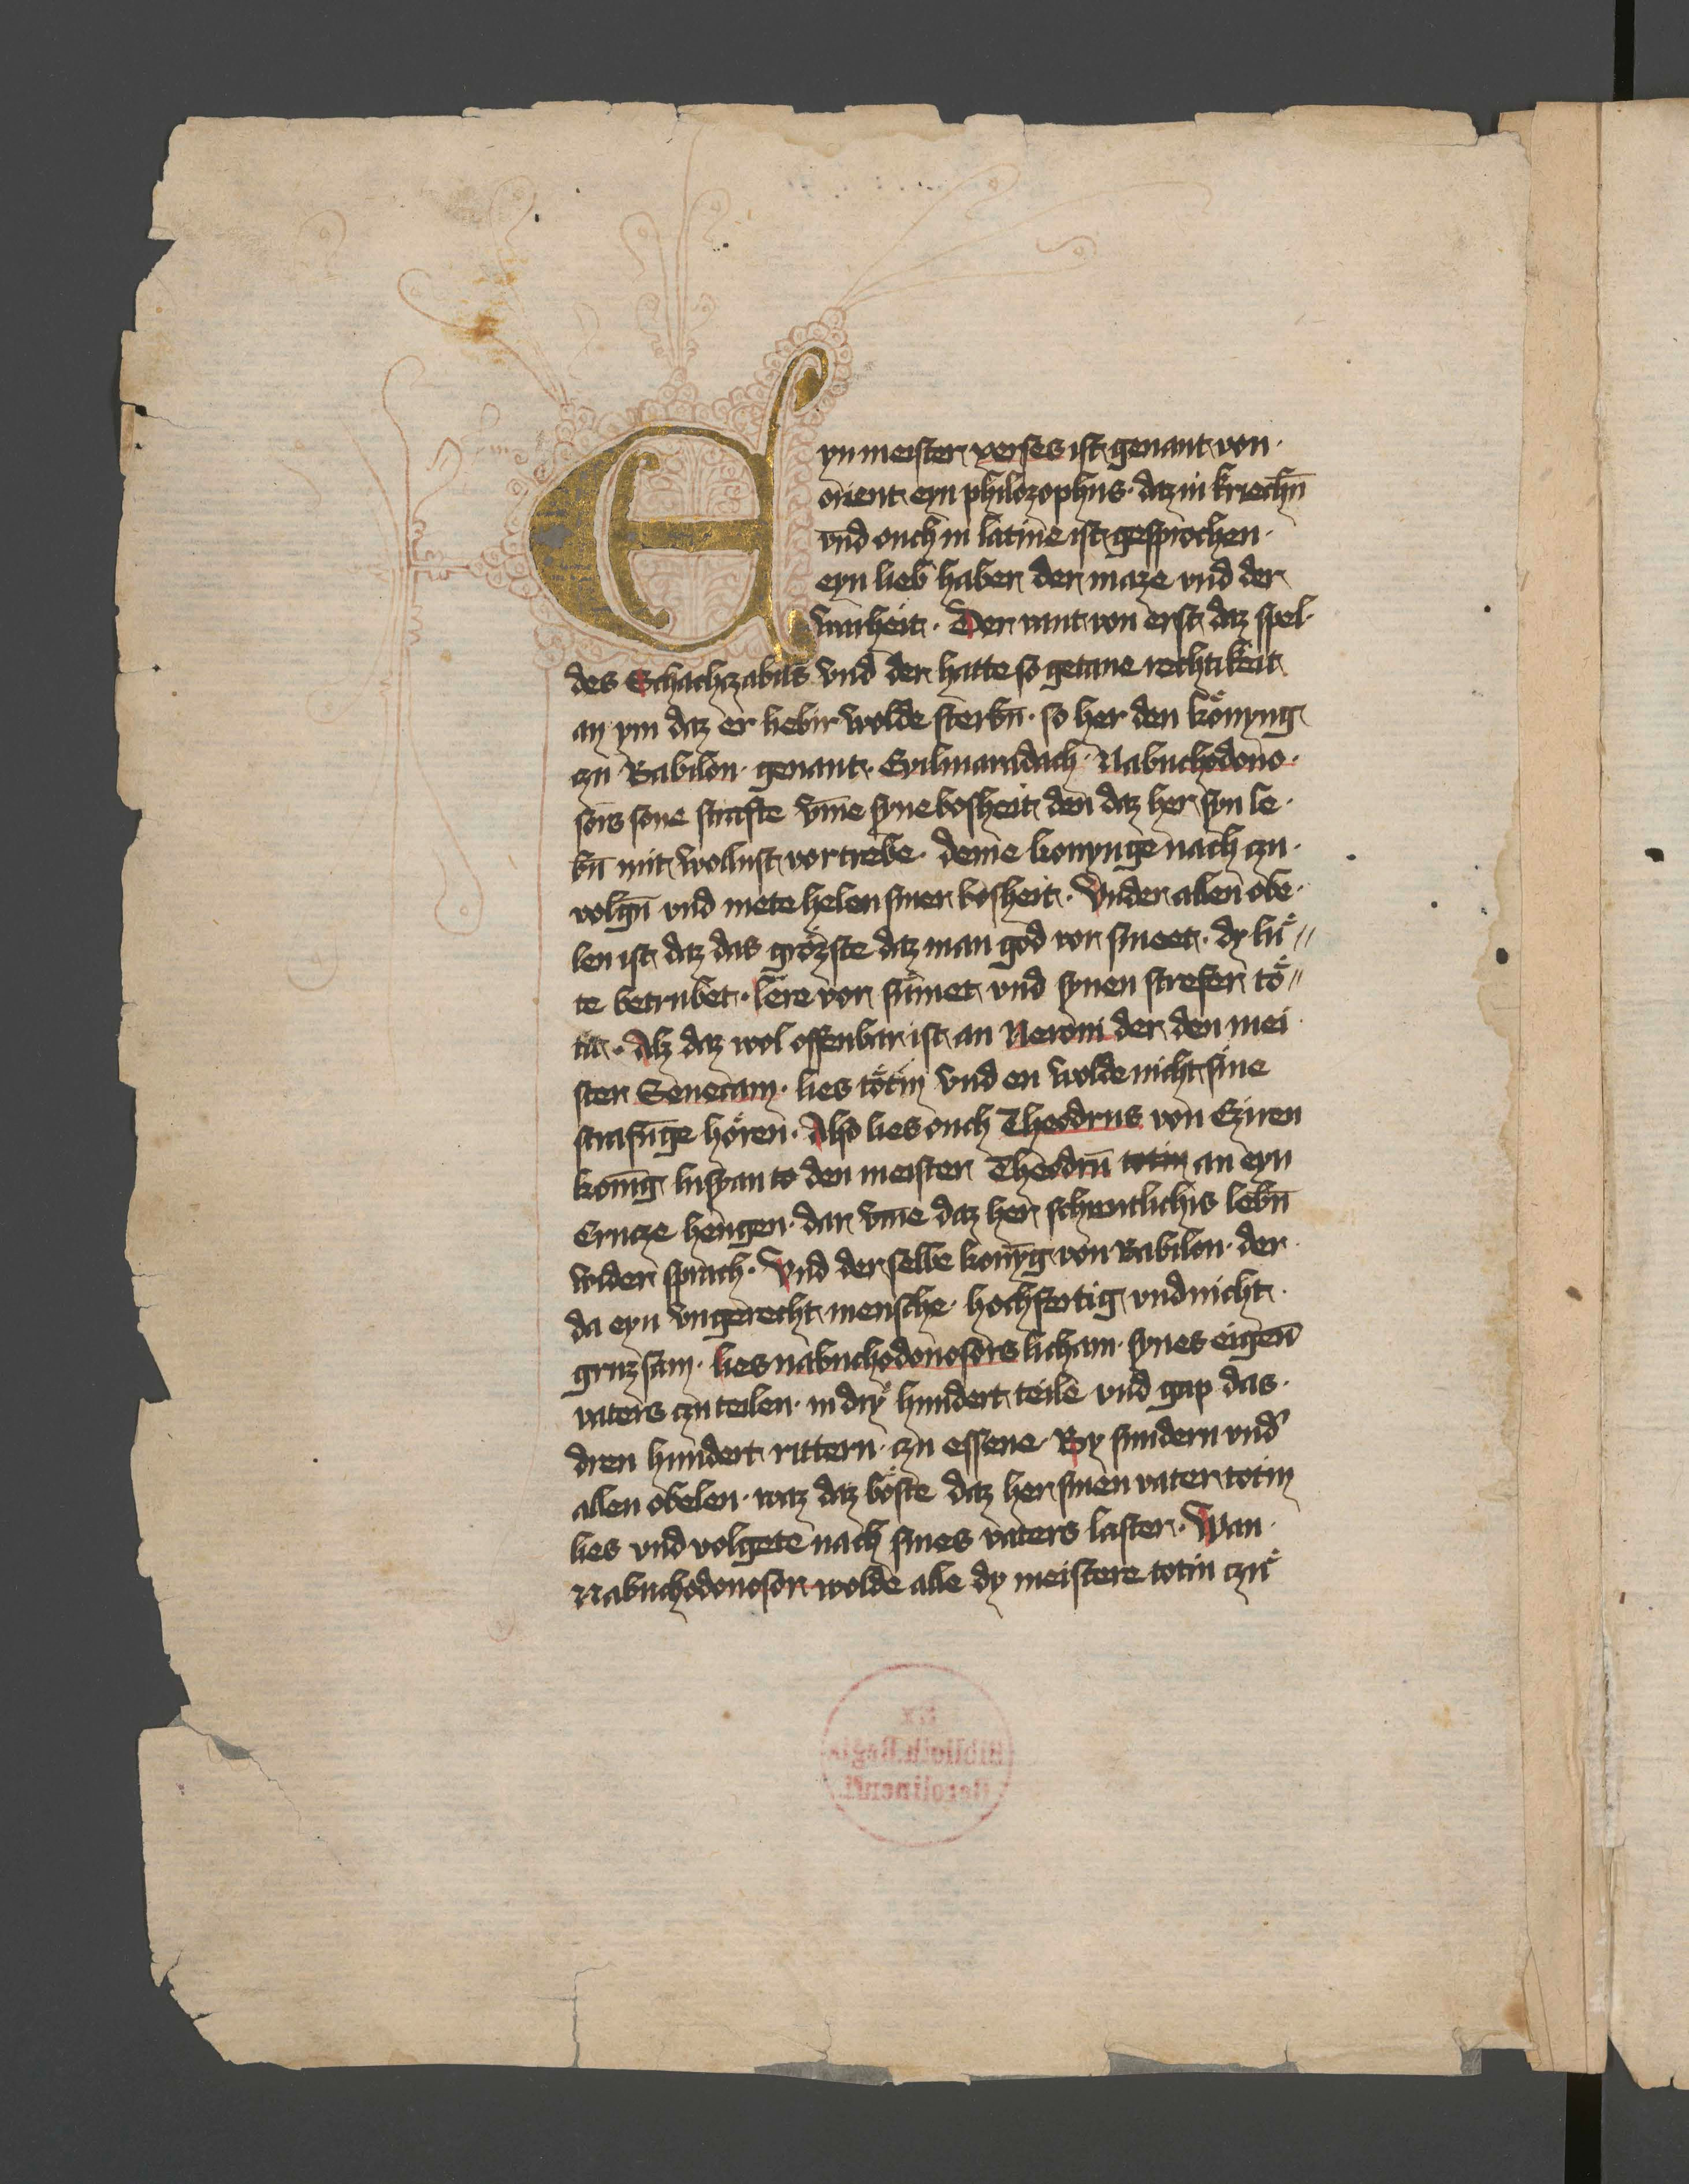 Eyn meister xerses ist genant von·
orient eyn philozophus· daz in kriechn̄
vnd ouch in latine ist gesprochen·
eyn lieb haber der maze vnd der
warheit· Der vant von erst daz spel·
des Schachzabils vnd der hatte so getane rechtikeit
an ym daz er liebir wolde sterbn̄· so her den kőnyng
czu Babilon· genant· Evilmaradach· Nabuchodono·
sors sone strafte vm̄e syne bosheit den daz her syn le·
bn̄ mit wollust vortrebe· deme konynge nach czu·
volgn̄ vnd mete helen siner bosheit· Vnder allen obe·
len ist daz das grőzste daz man god vor smeet· dy lű//
te betrubet· lere vor sűmet vnd synen strefer tő//
tit· Alz daz wol offenbar ist an Neroni der den mei·
ster Senecam· lies tőtin vnd en wolde nicht sine
strafūge hőren· Also lies ouch Theodrus von Cziren
konīg lusyan to den meister Theodrū totin an eyn
Crucze hengen· dar vm̄e daz her schentlichis lebn̄
wider sprach· Vnd der selbe konȳg von Babilon· der
da eyn vngerecht mensche· hochfertig vnd nicht
gruzsam· lies nabuchodonosors licham· synes eigen̄
vaters czu teilen· in dry hundert teile vnd gap das·
dren hundert rittern· czu essene· By sundern vnd'
allen obelen· waz daz bőste daz her sinen vater totin
lies vnd volgete nach sines vaters laster· Wan·
Nabuchodonosor wolde alle dy meistere totin czu
Ex
Biblioth. Regia
Berolinensi.